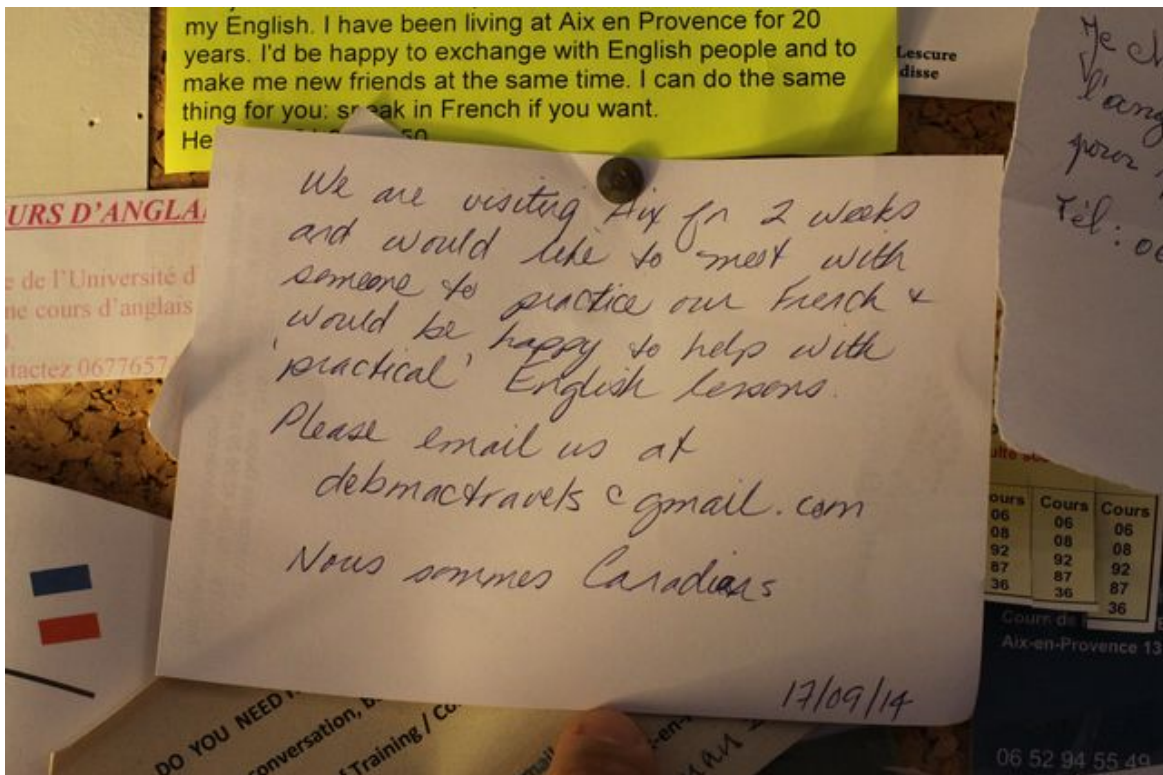 my English. I have been living at Aix en Provence for 20
years. I'd be happy to exchange with English people and to
make me new friends at the same time. I can do the same
thing for you: speak in French if you want.
Lescure
disse
URS D'ANGLA
e de l'Université d
cours d'anglais
tactez 067765
We are visiting Aix for 2 weeks
and would like to meet with
someone to practice our French &
would be happy to help with
'practical' English lessons.
Please email us at
debmactravels @ gmail.com
Nous sommes Canadians
17/09/14
Je
l'ang
pour
Tél: 06
ours Cours Cours
06 06 06
08 08 08
92 92 92
87 87 87
36 36 36
Aix-en-Provence 13
06 52 94 55 49
DO YOU NEED
onversation,
Training / Co